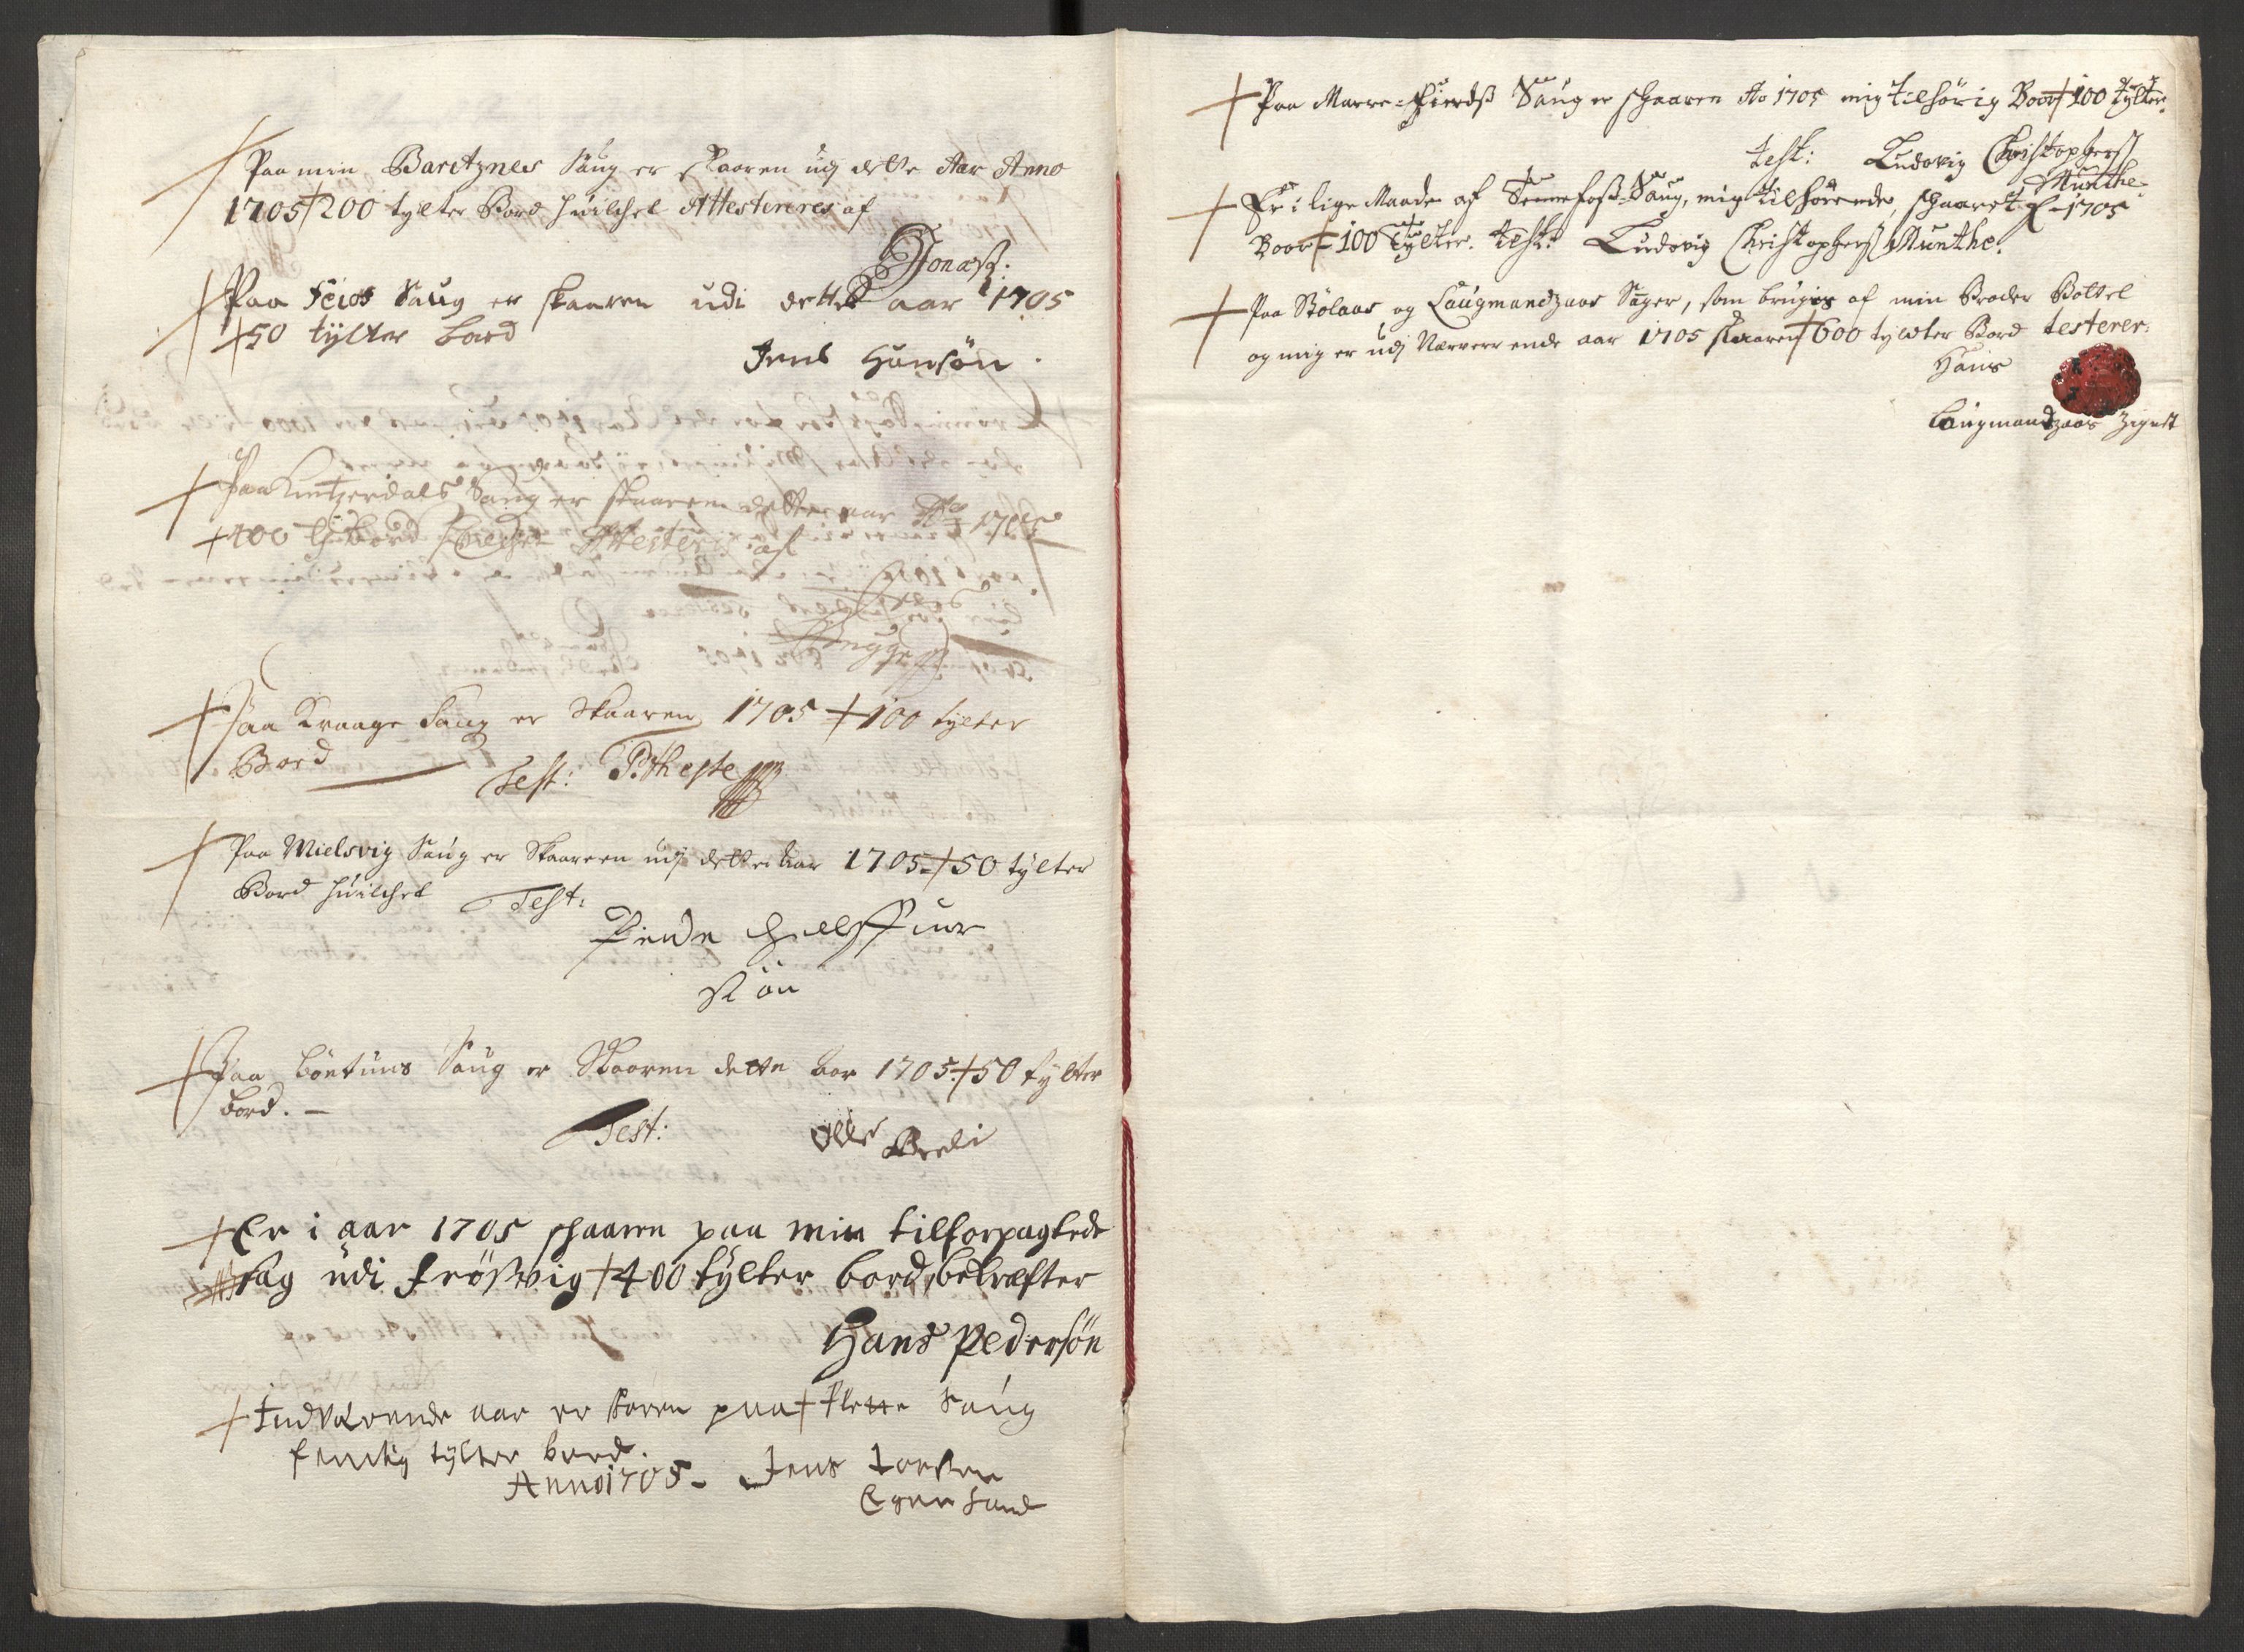 Paa min Baritznes Saug er skaaren udj dette Aar Anno
1705 200 tylter Bord huilchet Attesterer af
Jonas:
Paa Feios Saug er skaaren udi dette aar 1705
50 tylter bord
Jens Hansön.
Paa Saug er skaaren dette aar Ao 1705
400 tl bord Attesterer af
Paa Kraage Saug er Skaaren 1705 100 tylter
Bord
Test:
Paa Mielsvig Saug er Skaaren udj dette Aar 1705 50 tylter
Bord huilchet Test:
Peder
sön
Paa böetuns Saug er Skaaren dette Aar 1705 50 tylter
bord.
Test: olle
Er i aar 1705 schaaren paa min tilforpagtede
sag udi Frösvig 400 tylter bord, bekræfter
Hans Pedersön
Indværende aar er skaren paa flette saug
femtig tylter bord.
Anno 1705 Jens
Paa Marre-Fierds Saug er schaaren Ao 1705 mig tilhörig Boor 100 Tylter
test: Ludovig Christophers
Munthe
Er i lige Maade af Saug, mig tilhörende, schaaret 1705
Boor 100 Tylter. test: Ludovig Christophers Munthe.
Paa Stölaas og Laugmandzaas Sager, som brugis af min Broder Bottel
og mig er udj Nærverende aar 1705 skaaren 600 tylter Bord testerer
Hans
Laugmandzaas Zignet